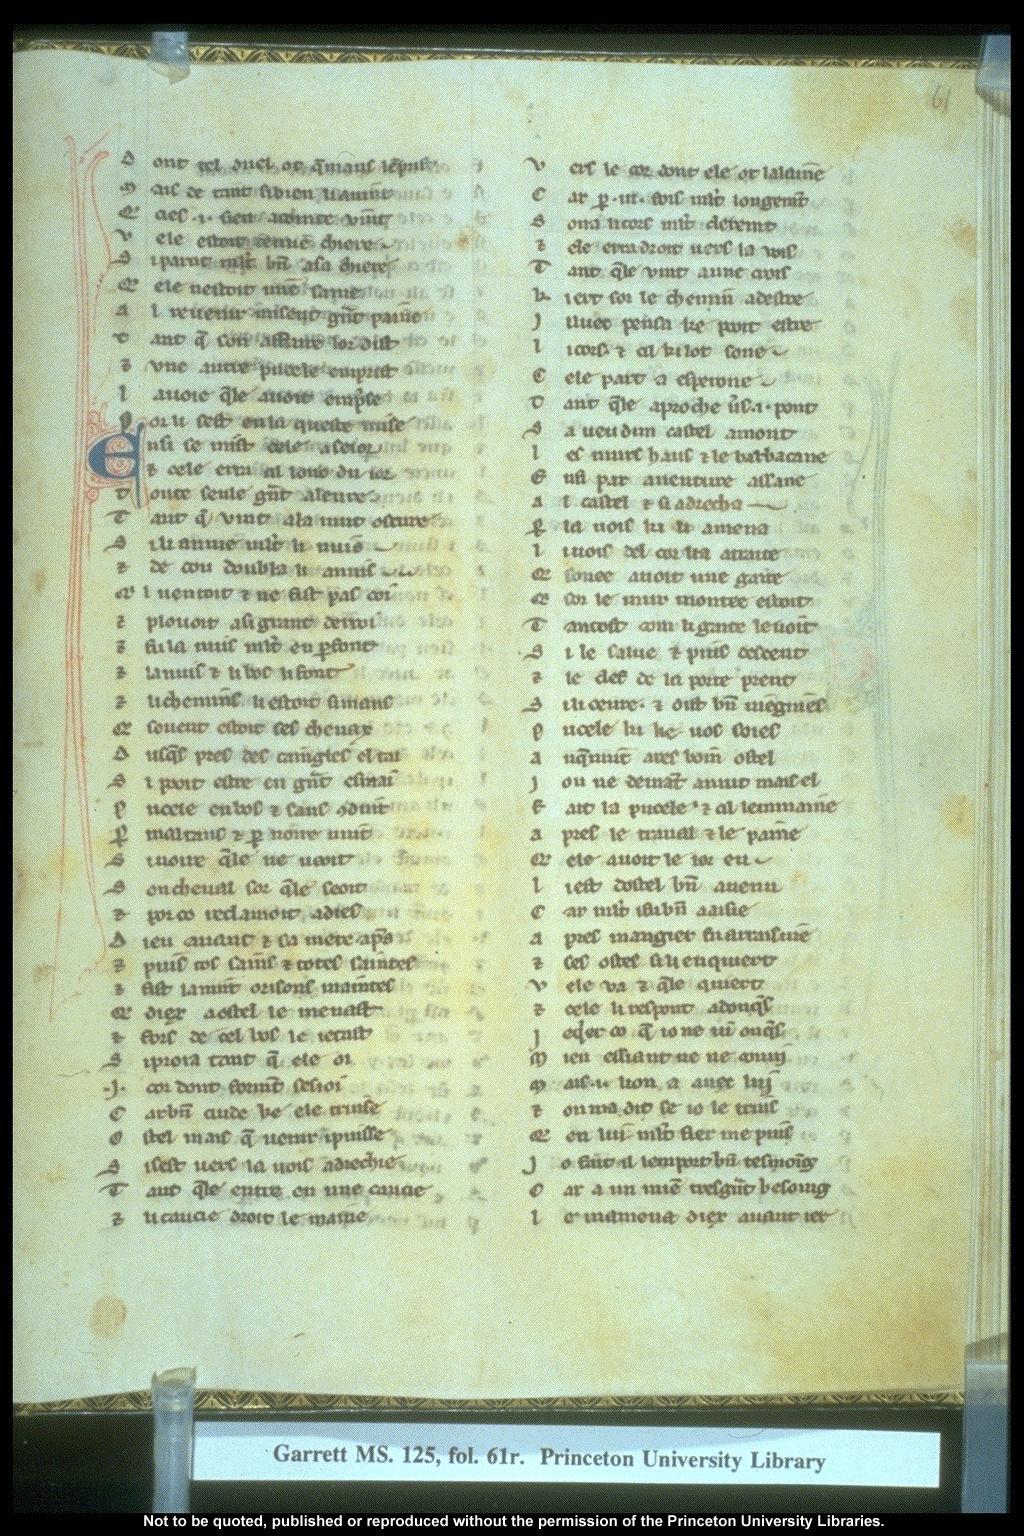 61
D ont tel duel ot
M ais de tant
V ele estoit tenue chiere
S i parut mlt bn a sa chiere
Q ele nestoit mie saine
A l revenir misent gnt paine
T ant q̄
⁊ vne autre pucele enprist
L avoie qle avoit emprise
P or li sest en la queste mise
E nsi se mist cele a
⁊ cele erra al lonc du ior
T oute seule gnt aleure
T ant q̄ vint a la nuit oscure
S i li anuie mlt li nuis
⁊ de cou doubla li anuis
Q l plovoit
⁊ plovoit a si grant desroi
⁊ fu la nuis mlt
⁊ la nuis ⁊ li bos li font
⁊ li chemins li estoit
Q souent estoit ses chevax
D usqs pres des cengles el tai
S i pooit estre en gnt esmai
P ucele en bos ⁊ sans
P mal tans ⁊ p noire nuit
S i noire qle ne veoit
S on cheval sor qle seoit
⁊ por co reclamoit adies
D ieu avant ⁊ sa mere aps
⁊ puis tos sains ⁊ totes saintes
⁊ fist la nuit orisons maintes
Q diex a ostel le menast
⁊ fors de cel bos le ietast
S i proia tant q̄ ele oi
.J. cor dont forment sesioi
C ar bn cuide ke ele truise
O stel mais q̄ venir i puisse
S i sest vers la vois adrechie
T ant qle entre en une caucie
⁊ li caucie droit le maine
V ers le cor dont ele ot lalaine
C ar p .iii. fois mlt longemt
S ona li cors mlt
⁊ ele erra droit vers la vois
T ant qle vint a une crois
K iert sor le chemin a destre
J lluec pensa ke pooit estre
L i cors ⁊ cil ki lot sone
C ele part a esperone
T ant qle aproche vs .i. pont
S a veu dun castel amont
L es murs blans ⁊ le barbacane
E nsi par aventure
A l castel ⁊ si adrecha
P la vois ki li amena
L i vois del cor lia atraite
Q sonee avoit une gaite
Q sor le mur montee estoit
T antost com li gaite le voit
S i le salue ⁊ puis descent
⁊ le clef de la porte prent
S i li oevre ⁊ dist bn
P ucele ki ke vos soies
A nqnuit ares bom ostel
J ou ne demāc anuit mais el
F ait la pucele ⁊ cil lemmaine
A pres le travail ⁊ le paine
Q ele avoit le ior eu
L i est dostel bn avenu
C ar mlt i fu bn aaisie
A pres mangier
⁊ ses ostes si li enquiert
V ele va ⁊ qle quiert
⁊ cele li respont adonqs
J e qer co q̄ io ne vi onqs
M ien essiant ne ne conui
M ais .i. lion a avec lui
⁊ on ma dit se io le truis
Q en lui mlt fier me puis
J o fait il lemport bn tesmoig
C ar a un mie tres gnt besoing
L e mamena diex avant ier
Garrett MS. 125, fol. 61r. Princeton University Library
Not to be quoted, published or reproduced without the permission of the Princeton University Libraries.